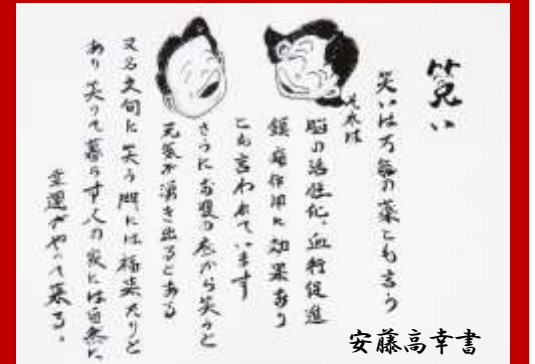 笑い
笑いは万能の薬とも言う
それは
脳の活性化、血行促進
鎮痛作用に効果あり
とも言われています
さらにお腹の底から笑うと
元気が湧き出るとある
又名文句に笑う門には福来たりと
あり笑って暮らす人の家には自然に
幸運がやって来る。
安藤高幸書